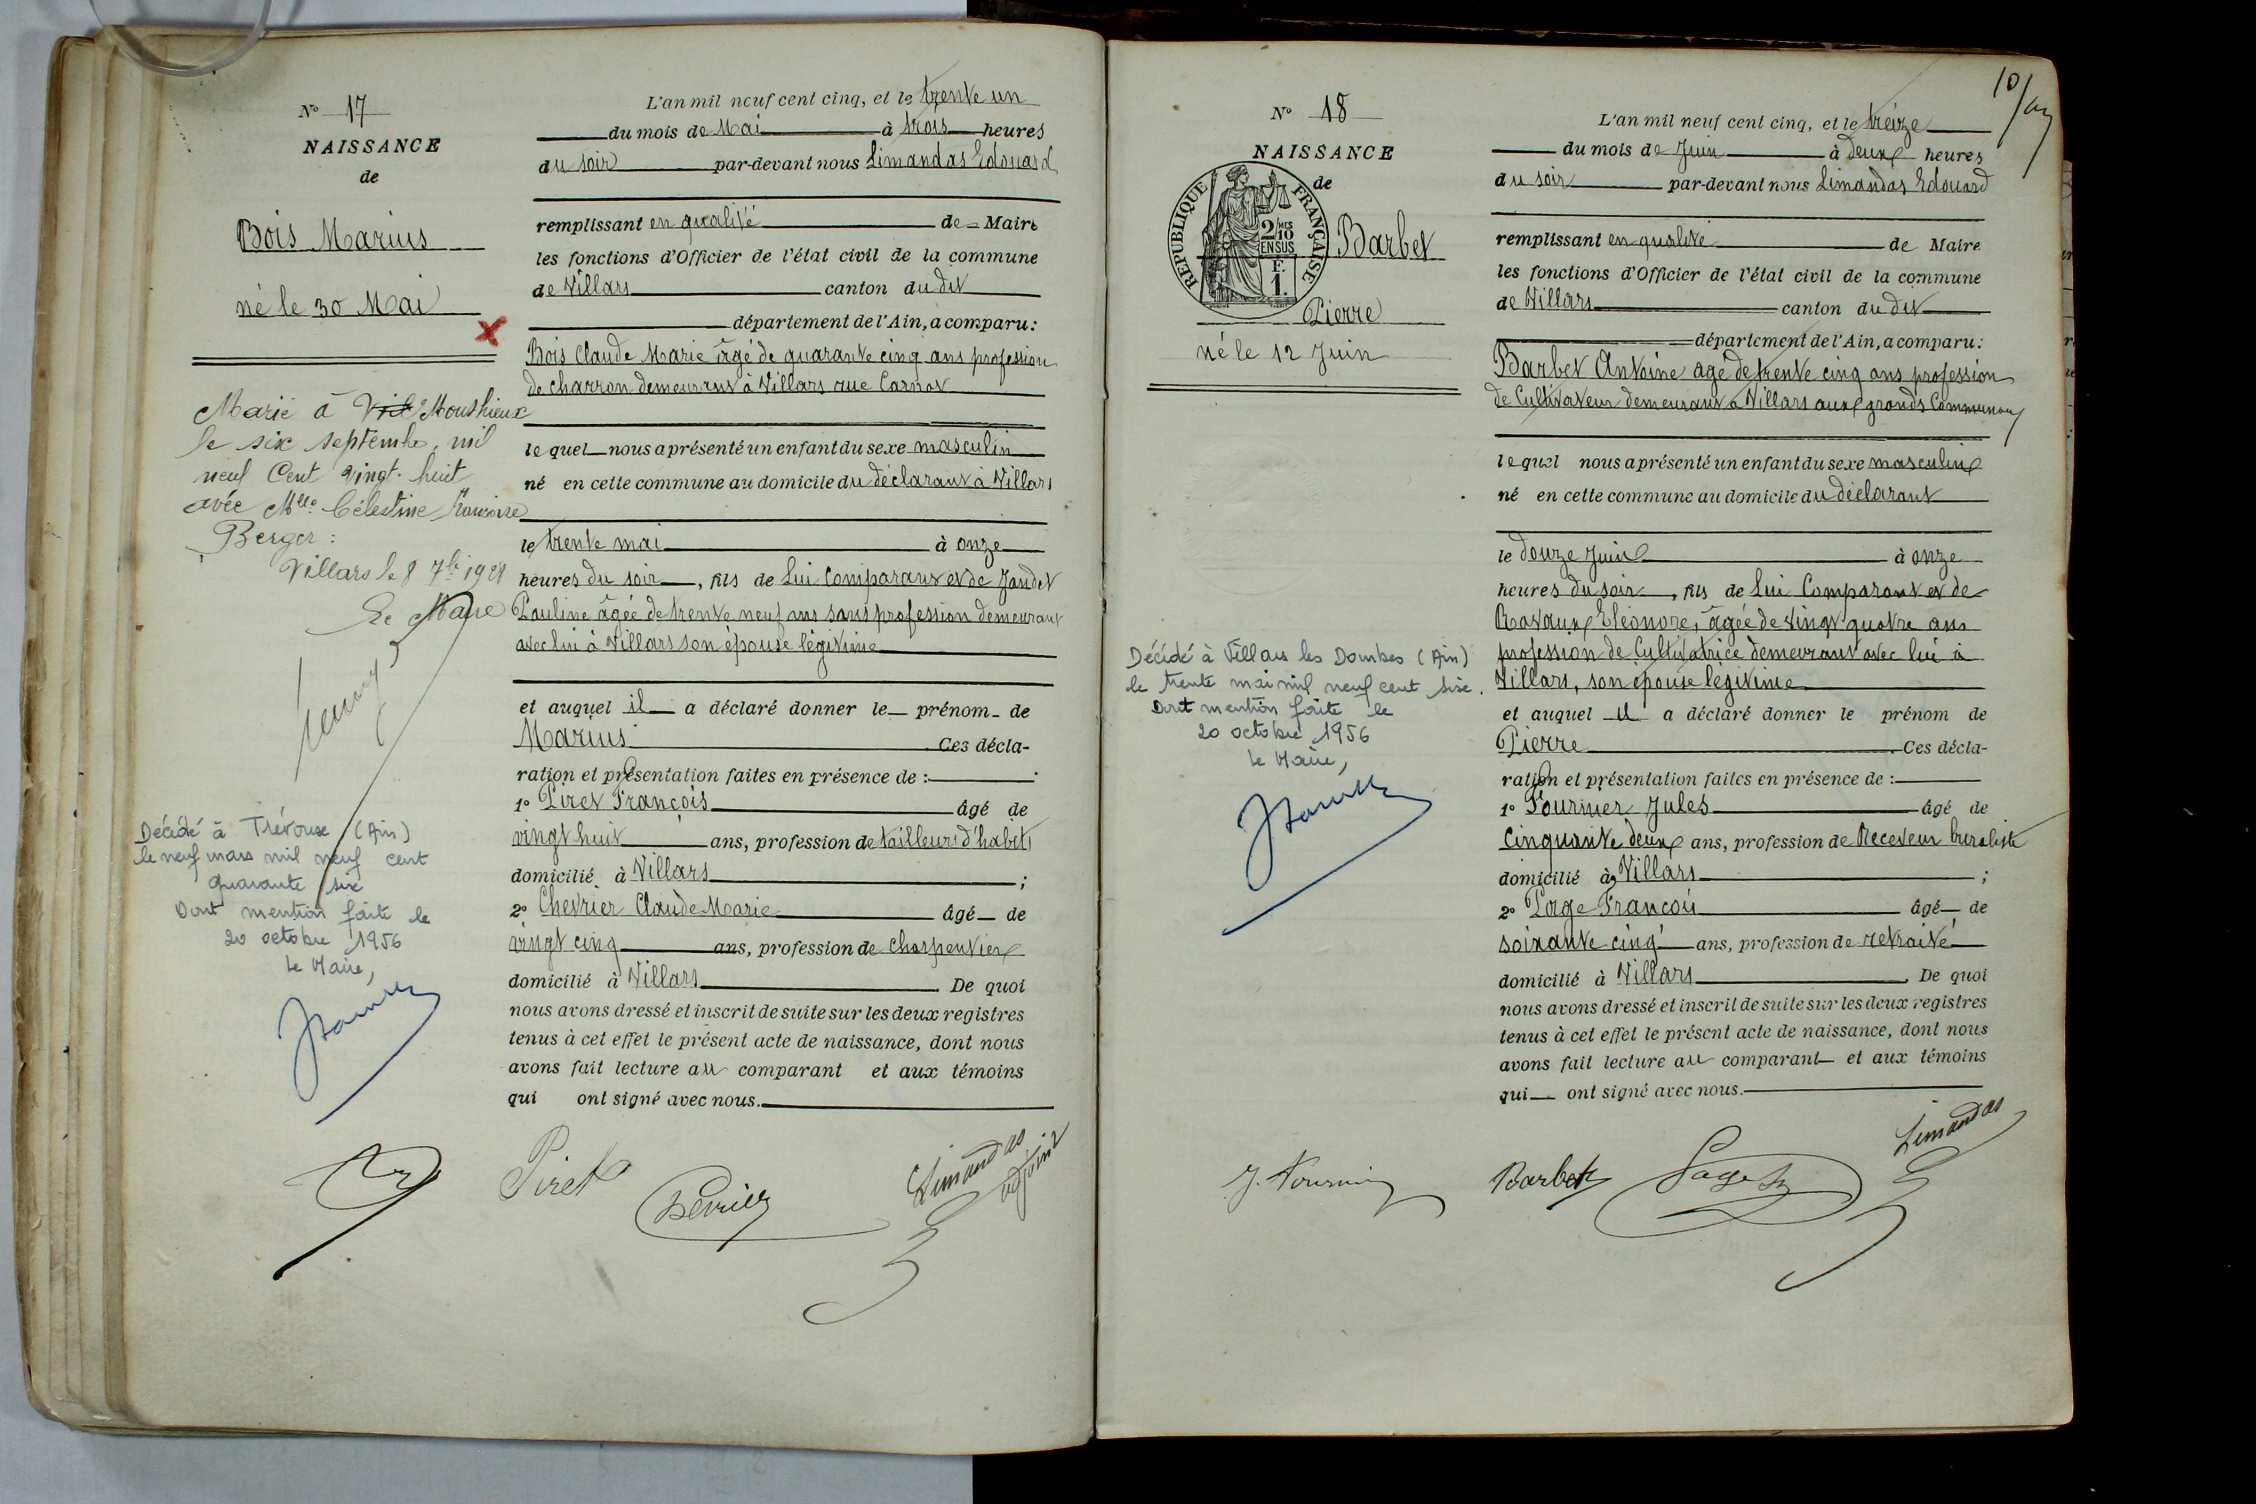 N° 17
NAISSANCE
de
Bois Marius
né le 30 Mai
Marié à Vill Monthieux
le six septembre, mil
neuf Cent vingt-huit
avec Mlle Célestine Françoise
Berger :
Villars le 8 7bre 1928
Le Maire
Décédé à Trévoux (Ain)
le neuf mars mil neuf cent
quarante six
Dont mention faite le
20 octobre 1956
Le Maire,
L'an mil neuf cent cinq, et le trente un
du mois de Mai à trois heures
du soir par-devant nous Limandas Edouard
remplissant en qualité de Maire
les fonctions d'Officier de l'état civil de la commune
de Villars canton du dit
département de l'Ain, a comparu :
Bois Claude Marie âgé de quarante cinq ans profession
de charron demeurant à Villars rue Carnot
le quel nous a présenté un enfant du sexe masculin
né en cette commune au domicile du déclarant à Villars
le trente mai à onze
heures du soir, fils de Lui Comparant et de Jandet
Pauline âgée de trente neuf ans sans profession demeurant
avec lui à Villars son épouse légitime
et auquel il a déclaré donner le prénom de
Marius Ces décla-
ration et présentation faites en présence de :
1° Piret François âgé de
vingt huit ans, profession de tailleur d'habits
domicilié à Villars ;
2° Chevrier Claude Marie âgé de
vingt cinq ans, profession de charpentier
domicilié à Villars De quoi
nous avons dressé et inscrit de suite sur les deux registres
tenus à cet effet le présent acte de naissance, dont nous
avons fait lecture au comparant et aux témoins
qui ont signé avec nous.
Piret
Chevrier
Limandas
adjoint
10
N° 18
NAISSANCE
de
REPUBLIQUE FRANÇAISE
2/10
EN SUS
F.
1.
Barbet
Pierre
né le 12 Juin
Décédé à Villars les Dombes (Ain)
le trente mai mil neuf cent six.
Dont mention faite le
20 octobre 1956
Le Maire,
L'an mil neuf cent cinq, et le treize
du mois de Juin à deux heures
du soir par-devant nous Limandas Edouard
remplissant en qualité de Maire
les fonctions d'Officier de l'état civil de la commune
de Villars canton du dit
département de l'Ain, a comparu :
Barbet Antoine âgé de trente cinq ans profession
de Cultivateur demeurant à Villars aux grands Communaux
le quel nous a présenté un enfant du sexe masculin
né en cette commune au domicile du déclarant
le douze Juin à onze
heures du soir, fils de Lui Comparant et de
Ravaux Eléonore, âgée de vingt quatre ans
profession de Cultivatrice demeurant avec lui à
Villars, son épouse légitime
et auquel il a déclaré donner le prénom de
Pierre Ces décla-
ration et présentation faites en présence de :
1° Fournier Jules âgé de
Cinquante deux ans, profession de Receveur buraliste
domicilié à Villars ;
2° Page François âgé de
soixante cinq ans, profession de retraité
domicilié à Villars De quoi
nous avons dressé et inscrit de suite sur les deux registres
tenus à cet effet le présent acte de naissance, dont nous
avons fait lecture au comparant et aux témoins
qui ont signé avec nous.
J. Fournier
Barbet
Page
Limandas